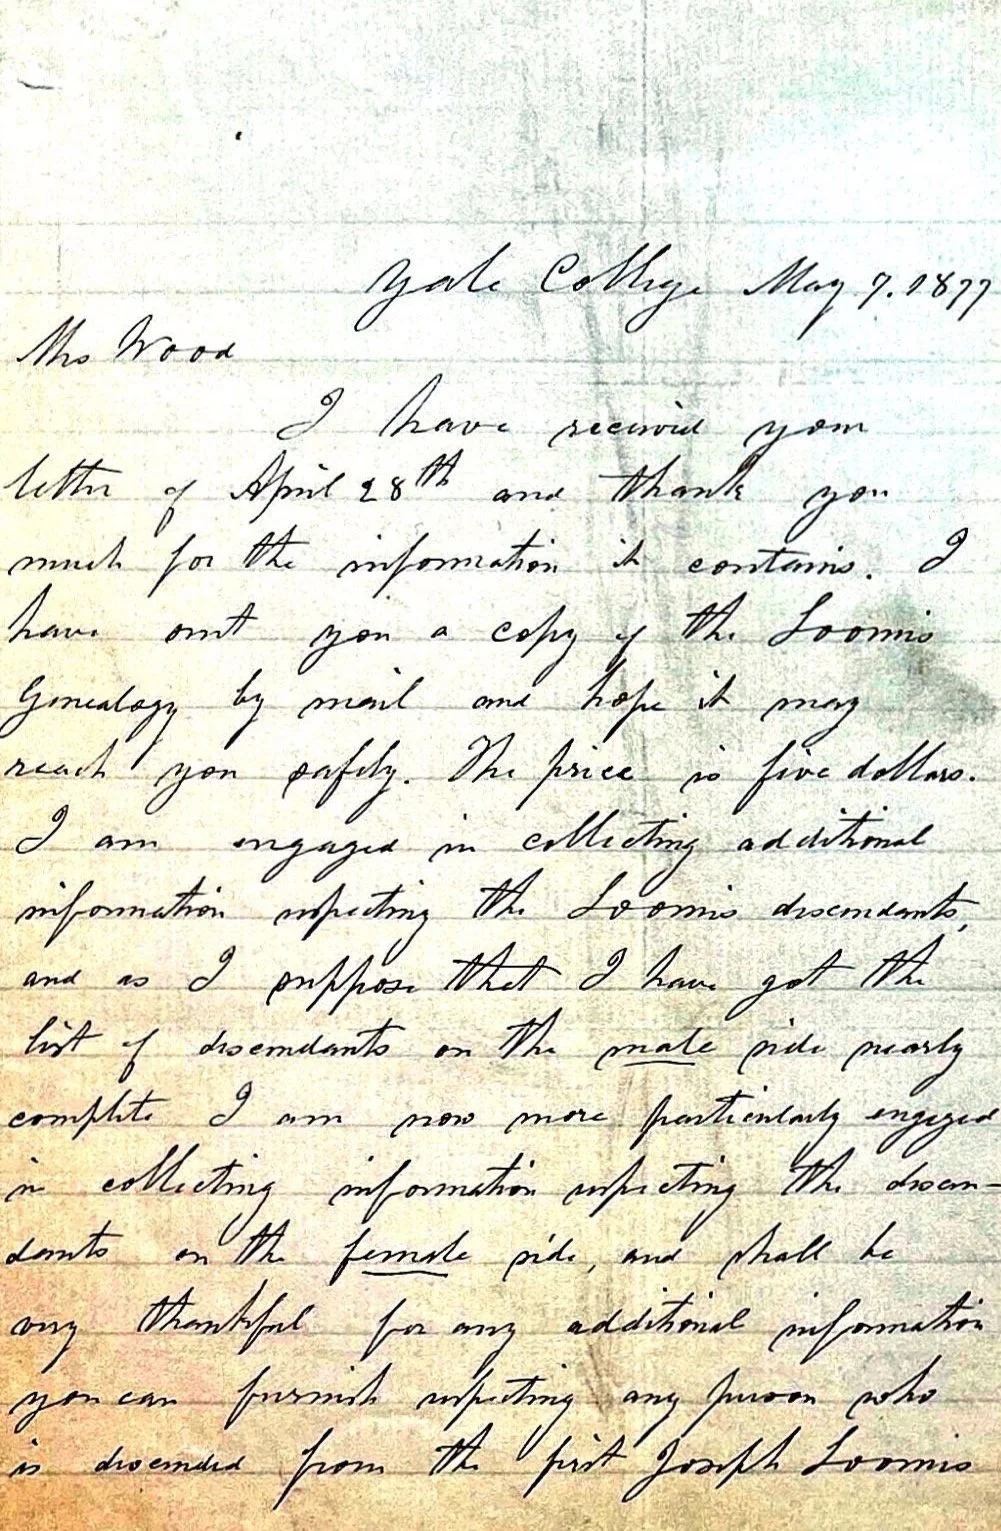 Yale College May 7. 1877
Mrs Wood
I have received your
letter of April 28th and thank you
much for the information it contains. I
have sent you a copy of the Loomis
Genealogy by mail and hope it may
reach you safely. The price is five dollars.
I am engaged in collecting additional
information respecting the Loomis descendants,
and as I suppose that I have got the
list of descendants on the male side nearly
complete I am now more particularly engaged
in collecting information respecting the descen-
dants on the female side, and shall be
very thankful for any additional information
you can furnish respecting any person who
is descended from the first Joseph Loomis